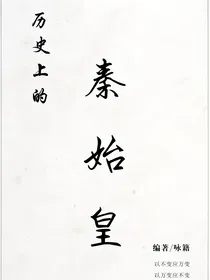 历史上的
秦始皇
编著/咏籍
以不变应万变
以万变应不变